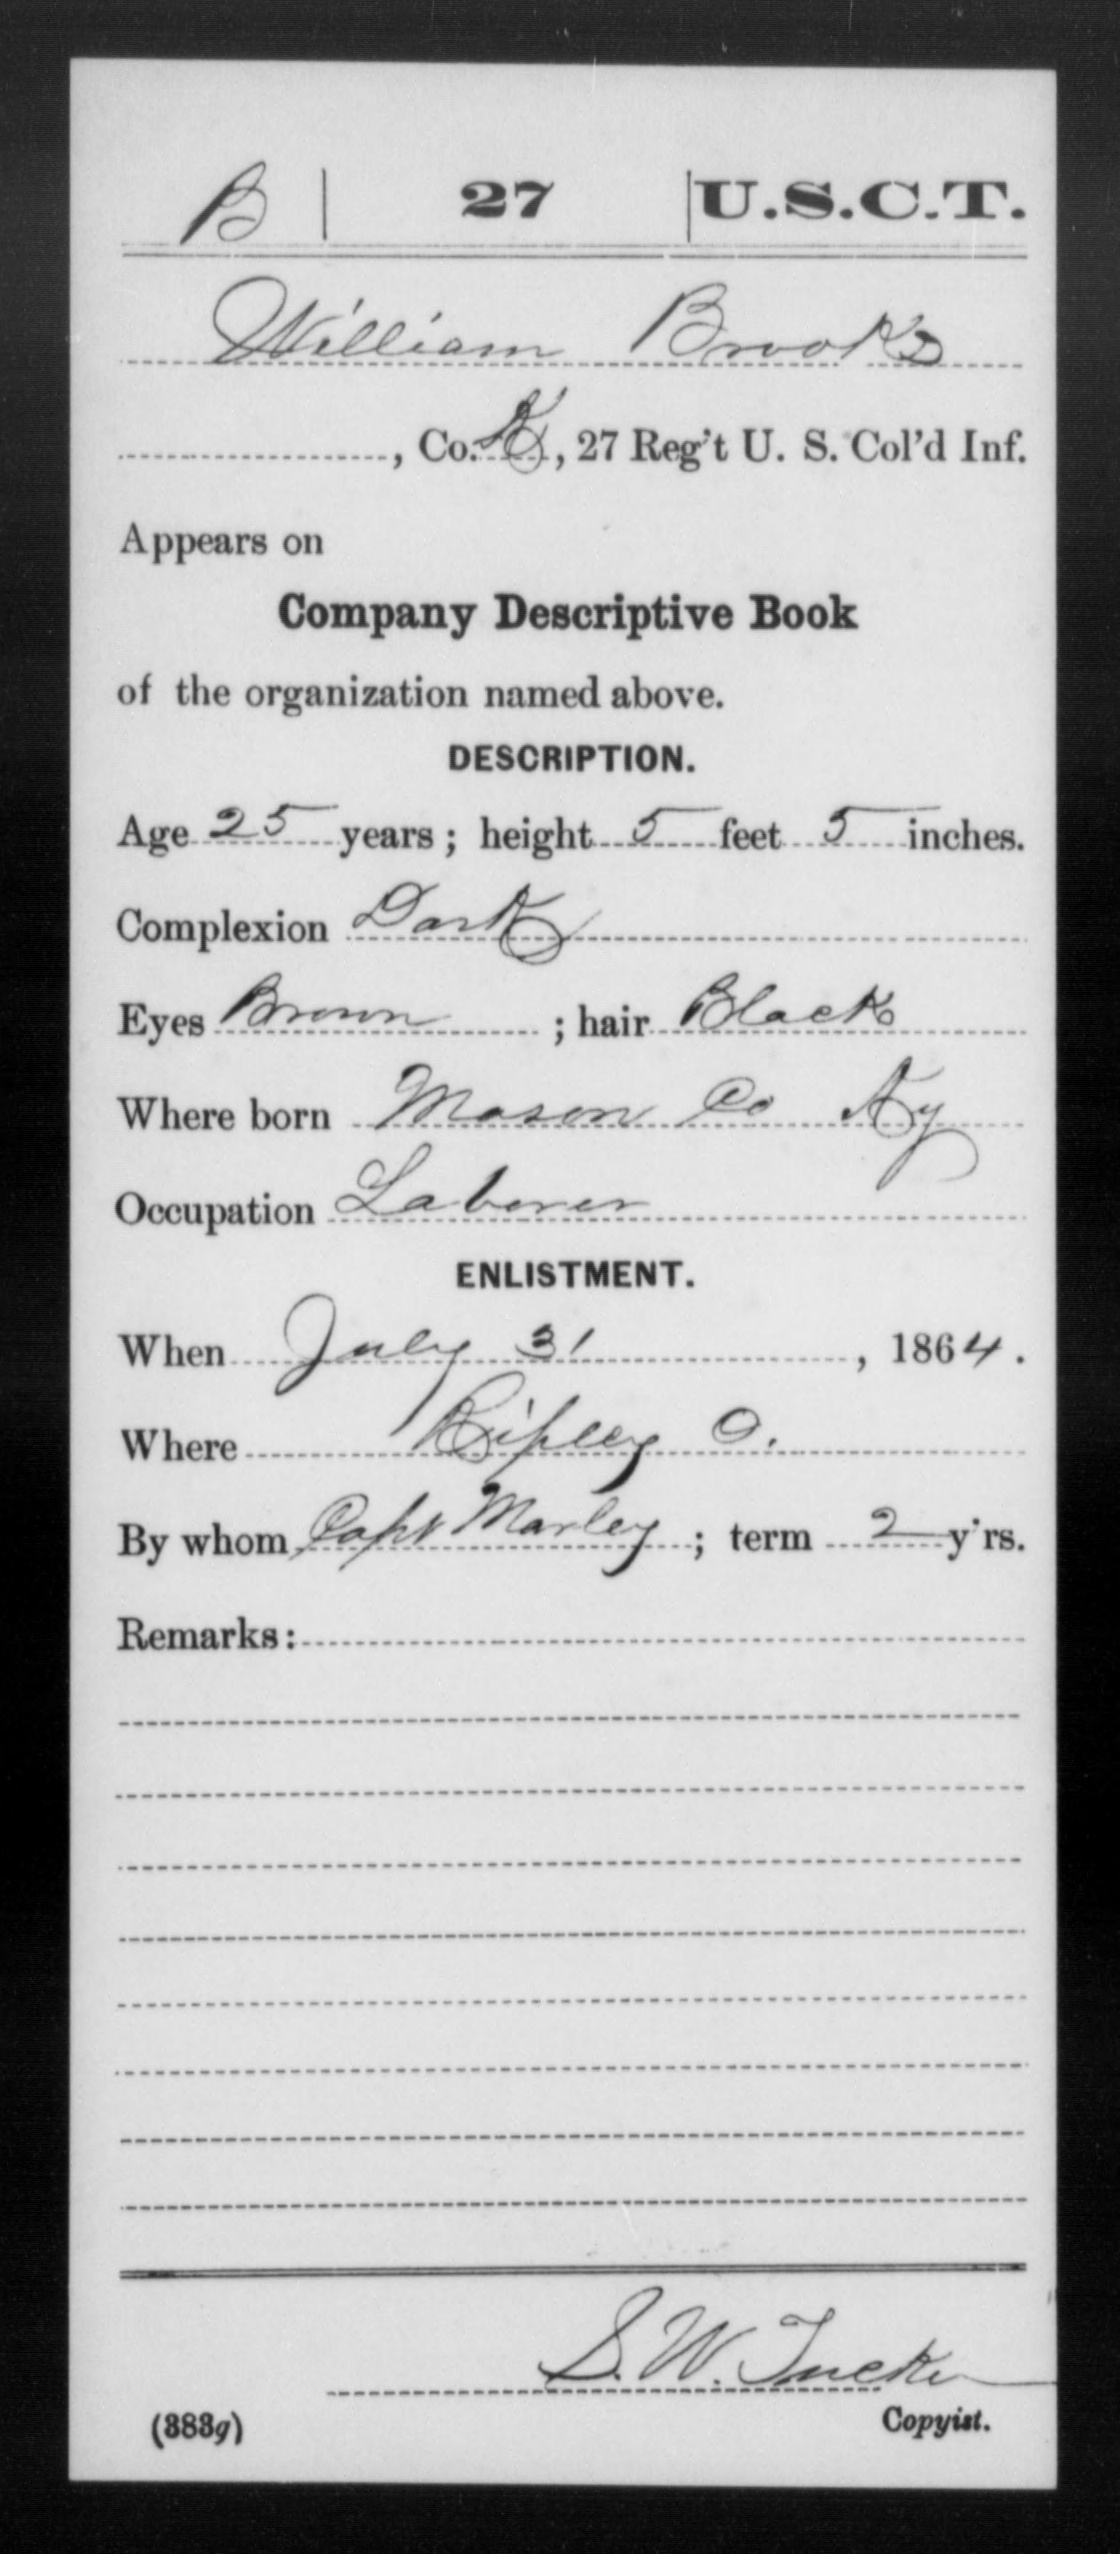 B | 27 | U.S.C.T.
William Brooks
, Co. K, 27 Reg't U. S. Col'd Inf.
Appears on
Company Descriptive Book
of the organization named above.
DESCRIPTION.
Age 25 years; height 5 feet 5 inches.
Complexion Dark
Eyes Brown; hair Black
Where born Mason Co Ky
Occupation Laborer
ENLISTMENT.
When July 31, 1864.
Where Ripley O.
By whom Capt Marley; term 2 y'rs.
Remarks:
S. W. Tucker
(383g) Copyist.